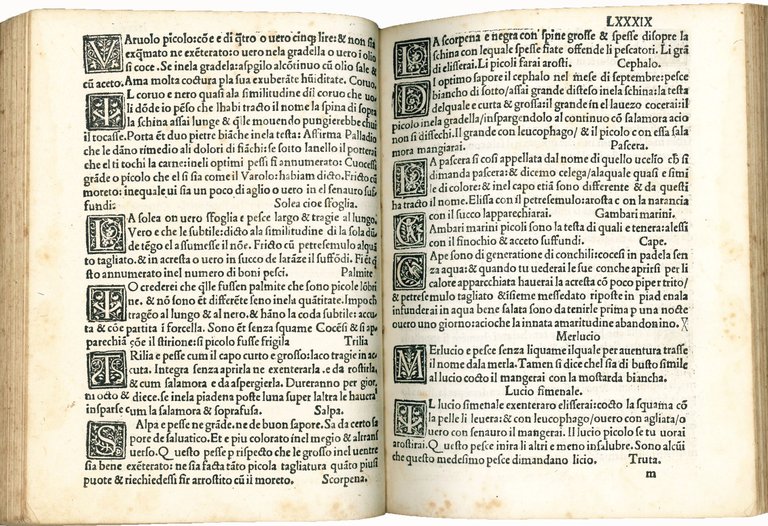 VAruolo picolo: cõe e di q̃tro o uero cinq̃ lire: & non sia
exq̃mato ne exẽterato: o uero nela gradella o uero i olio
si coce. Se inela gradela: aspgilo alcõtinuo cũ olio sale &
cũ aceto. Ama molta coctura pla sua exuberãte hũiditate. Coruo.
IL coruo e nero quasi ala similitudine dil coruo che uo-
li dõde io pẽso che lhabi tracto il nome la spina di sopra
la schina assai lunge & q̃lle mouendo pungierebbe chiu
il tocasse. Porta ẽt duo pietre biãche inela testa: Affirma Palladio
che le dãno rimedio ali dolori di fiãchi: se sotto lanello il porterai
che el ti tochi la carne: ineli optimi pessi si annumerato: Cuocessi
grãde o picolo che el si sia come il Varolo: habiam dicto. Frictο cũ
moreto: inequale ui sia un poco di aglio o uero in el senauro suf-
fundi. Solea cioe sfoglia.
LA solea on uero sfoglia e pesce largo & tragie al lungo.
Vero e che le subtile: dicto ala similitudine di la sola dũ
de tẽgo el assumesse il nõe. Frictο cũ petresemulo alquã
to tagliato. & in acresta o uero in succo de larãze il suffõdi. Et q̃
sto annumerato inel numero di boni pesci. Palmite
IO crederei che q̃lle fussen palmite che sono picole lõbri
ne. & nõ sono ẽt differẽte seno inela quãtitate. Impoch
tragẽo al lungo & al nero. & hãno la coda subtile: accu
ta & cõe partita i forcella. Sono ẽt senza squame Cocẽsi & si ap-
parechiã cõe il stirione: si picolo fusse frigila Trilia
TRilia e pesse cum il capo curto e grosso: laco tragie in ac
cuta. Integra senza aprirla ne exenterarla. e da rostirla,
& cum salamora e da aspergierla. Dureranno per gior,
ni octo & diece. se inela piadena poste luna super laltra le hauerai
insparse cum la salamora & soprafusa. Salpa.
SAlpa e pesse ne grãde. ne de buon sapore. Sa da certo sa
pore de saluatico. Et e piu colorato inel megio & altran
uerso. Questo pesse p rispecto che le grosso inel uentre
sia bene exẽterato: ne sia facta tãto picola tagliatura quãto piusi
puote & riechiedessi fir arrostito cũ il moreto. Scorpena.
LXXXIX
LA scorpena e negra con spine grosse & spesse disopre la
schina con lequale spesse fiate offende li pescatori. Li grã
di elisserai. Li picoli farai arosti. Cephalo.
DI optimo sapore il cephalo nel mese di septembre: pesce
biancho di sotto/assai grande disteso inela schina: la testa
delquale e curta & grossa: il grande in el lauezo cocerai: il
picolo inela gradella/inspargendolo al continuo cõ salamora acio
non si dessechi. Il grande con leucophago/ & il picolo con essa sala
mora mangiarai. Pascera.
LA pascera si cosi appellata dal nome di quello ucello ch̃ si
dimanda pascera: & dicemo celega/alaquale quasi e simi
le di colore: & in el capo etiã sono differente & da questi
ha tracto il nome. Elissa con il petresemulo: arosta e on la narancia
con il succo lapparechiarai. Gambari marini.
GAmbari marini picoli sono la testa di quali e tenera: alessi
con il finochio & acceto suffundi. Cape.
CApe sono di generatione di conchili: cocesi in padela sen
za aqua: & quando tu uederai le sue conche aprirsi per li
calore apparcchiata hauerai la acresta cõ poco piper trito/
& petresemulo tagliato & isieme messedato riposte in piadenala
infunderai in aqua bene salata sono da tenirle prima p una nocte
ouero uno giorno: acioche la innata amaritudine abandonino.
Merlucio
MErlucio e pesce senza liquame il quale per auentura trasse
il nome dala merla. Tamen si dice chel sia di busto simile
al lucio cocto il mangerai con la mostarda biancha.
Lucio fimenale.
IL lucio fimenale exenteraro elisserai: cocto la squama cõ
la pelle li leuera: & con leucophago/ouero con agliata/o
uero con senauro il mangerai. Il lucio picolo se tu uorai
arostirai. Questo pesce inira li altri e meno insalubre. Sono alcũi
che questo medesimo pesce dimandano licio. Truta.
m